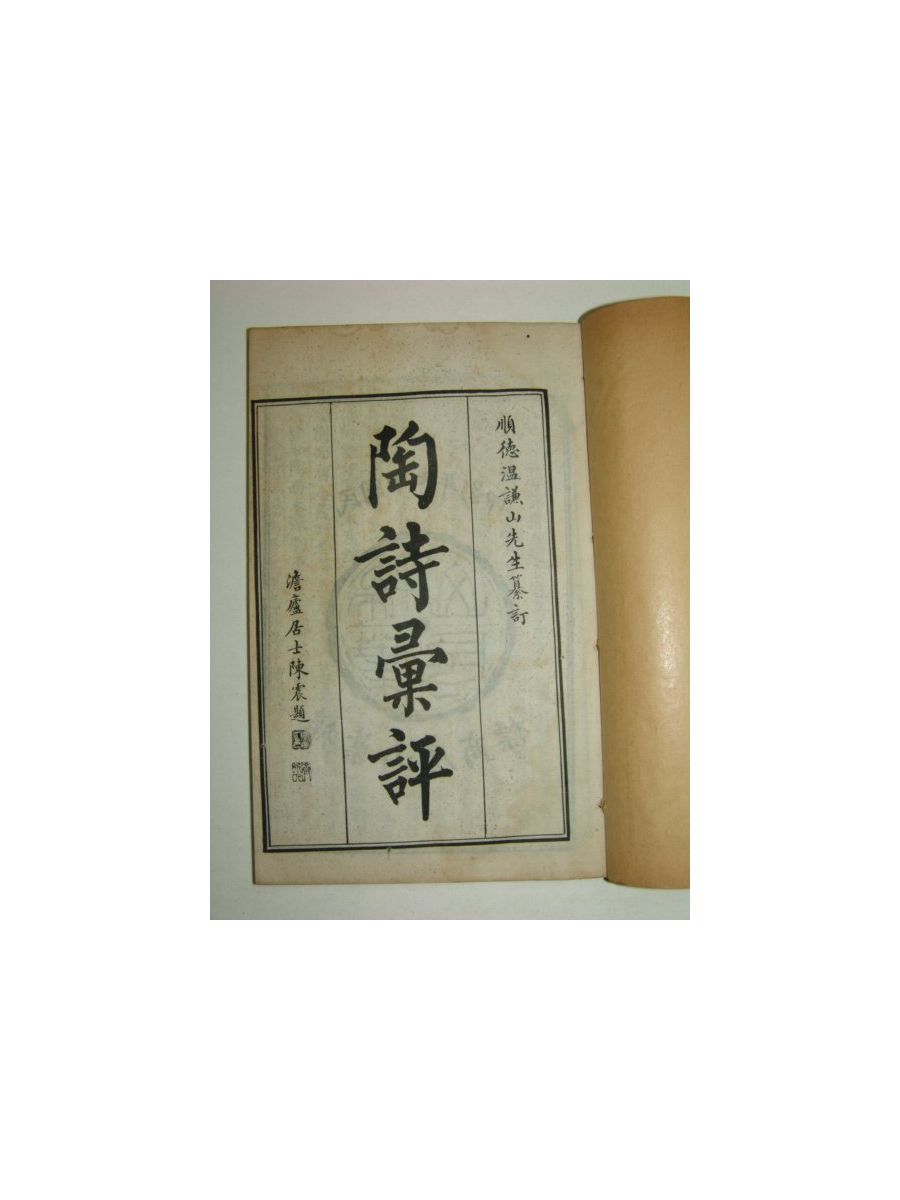 順德溫謙山先生纂訂
陶詩彙評
澹廬居士陳震題